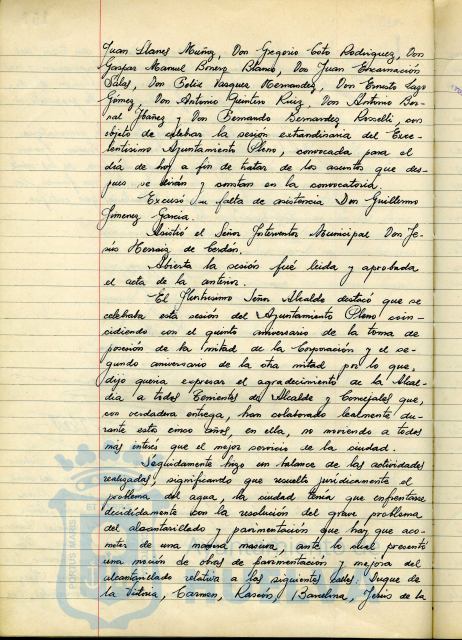 Juan Llanes Muñoz, Don Gregorio Coto Rodriguez, Don
Gaspar Manuel Bonero Blanco, Don Juan Encarnación
Salas, Don Felix Vasquez Hernandez, Don Ernesto Lazo
Gómez, Don Antonio Quintero Ruiz, Don Antonio Ber-
nal Ibañez y Don Fernando Bernardez Rosselli, con
objeto de celebrar la sesion extraordinaria del Exce-
lentissimo Ayuntamiento Pleno, convocada para el
día de hoy a fin de tratar de los asuntos que des-
pues se dirán y constan en la convocatoria.
Excusó su falta de asistencia Don Guillermo
Jimenez Garcia.
Asistió el Señor Interventor Municipal Don Je-
sús Herraiz de Cerdán.
Abierta la sesión fué leida y aprobada
el acta de la anterior.
El Ilustrisimo Señor Alcalde destacó que se
celebraba esta sesión del Ayuntamiento Pleno coin-
cidiendo con el quinto aniversario de la toma de
posesión de la mitad de la Corporación y el se-
gundo aniversario de la otra mitad por lo que,
dijo queria expresar el agradecimiento de la Alcal-
dia a todos Tenientes de Alcalde y Concejales que,
con verdadera entrega, han colaborado lealmente du-
rante estos cinco años, en ella, no moviendo a todos
mas interés que el mejor servicio de la ciudad.
Seguidamente hizo un balance de las actividades
realizadas, significando que resuelto juridicamente el
problema del agua, la ciudad tenia que enfrentarse
decididamente con la resolución del grave problema
del alcantarillado y pavimentación que hay que aco-
meter de una manera masiva, ante lo cual presentó
una moción de obras de pavimentación y mejora del
alcantarillado relativa a las siguientes calles: Duque de
la Victoria, Carmen, Rascón, Barcelona, Jesús de la